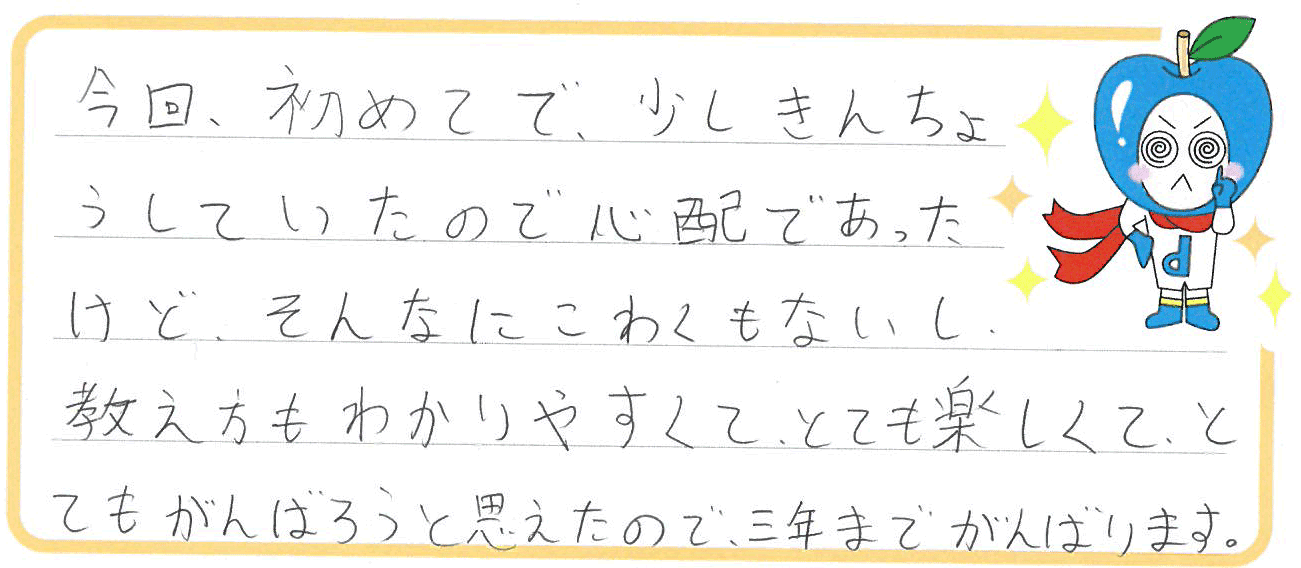 今回、初めてで、少しきんちょ
うしていたので心配であった
けど、そんなにこわくもないし、
教え方もわかりやすくて、とても楽しくて、と
てもがんばろうと思えたので、三年までがんばります。
d